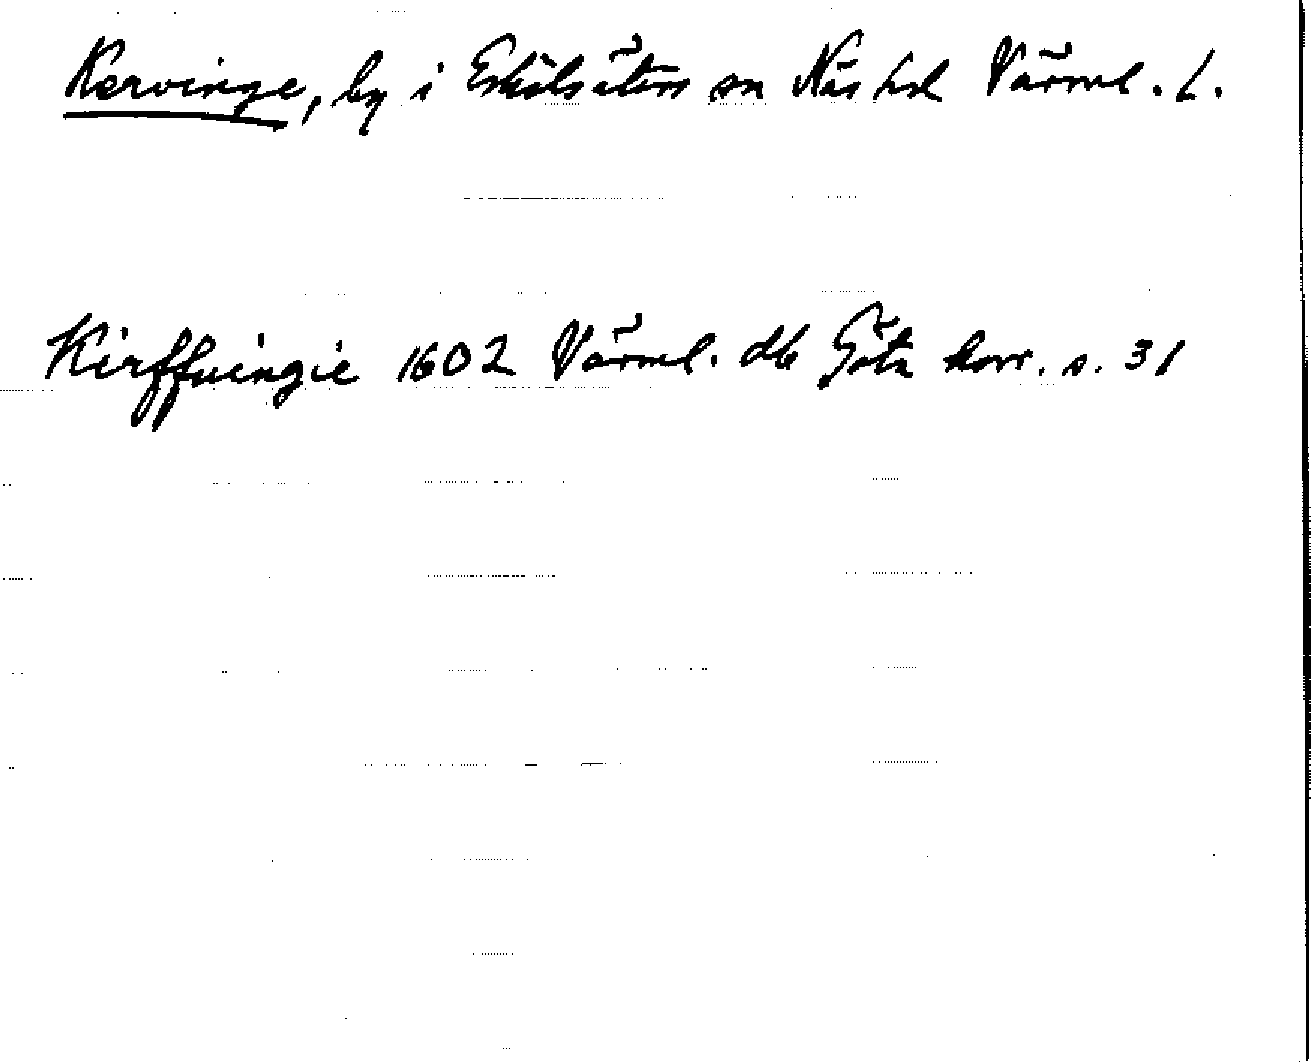 Kervinge, by i Eskilsäters sn Näs hd Värml. l.
Kirffuingie 1602 Värml. db Göta korr. s. 31